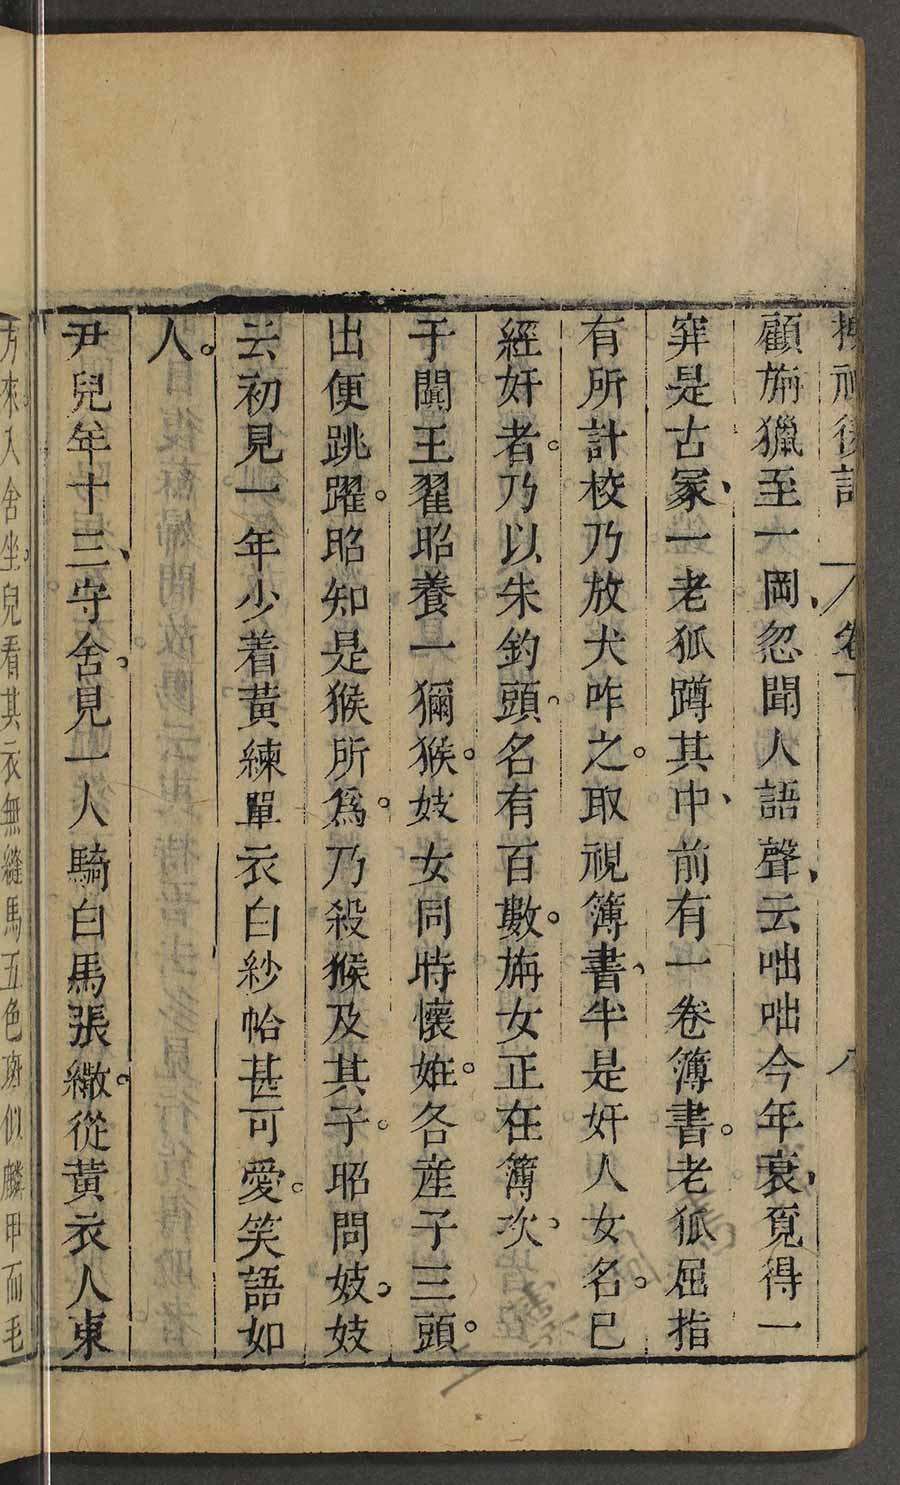 搜神後記 卷下 八
顧旃獵至一岡、忽聞人語聲、云咄咄今年衰、覓得一
穽是古冢、一老狐蹲其中、前有一卷簿書。老狐屈指
有所計校乃放犬咋之。取視簿書、半是奸人女名。已
經奸者。乃以朱鈎頭。名有百數。旃女正在簿次。
于闐王翟昭養一獼猴。妓女同時懷姙。各産子三頭。
出便跳躍。昭知是猴所爲。乃殺猴及其子。昭問妓。妓
云初見一年少着黃練單衣白紗帢甚可愛。笑語如
人。
尹兒年十三、守舍。見一人騎白馬張繖。從黃衣人東
方來入舍坐。兒看其衣無縫馬五色斑似麟甲而毛